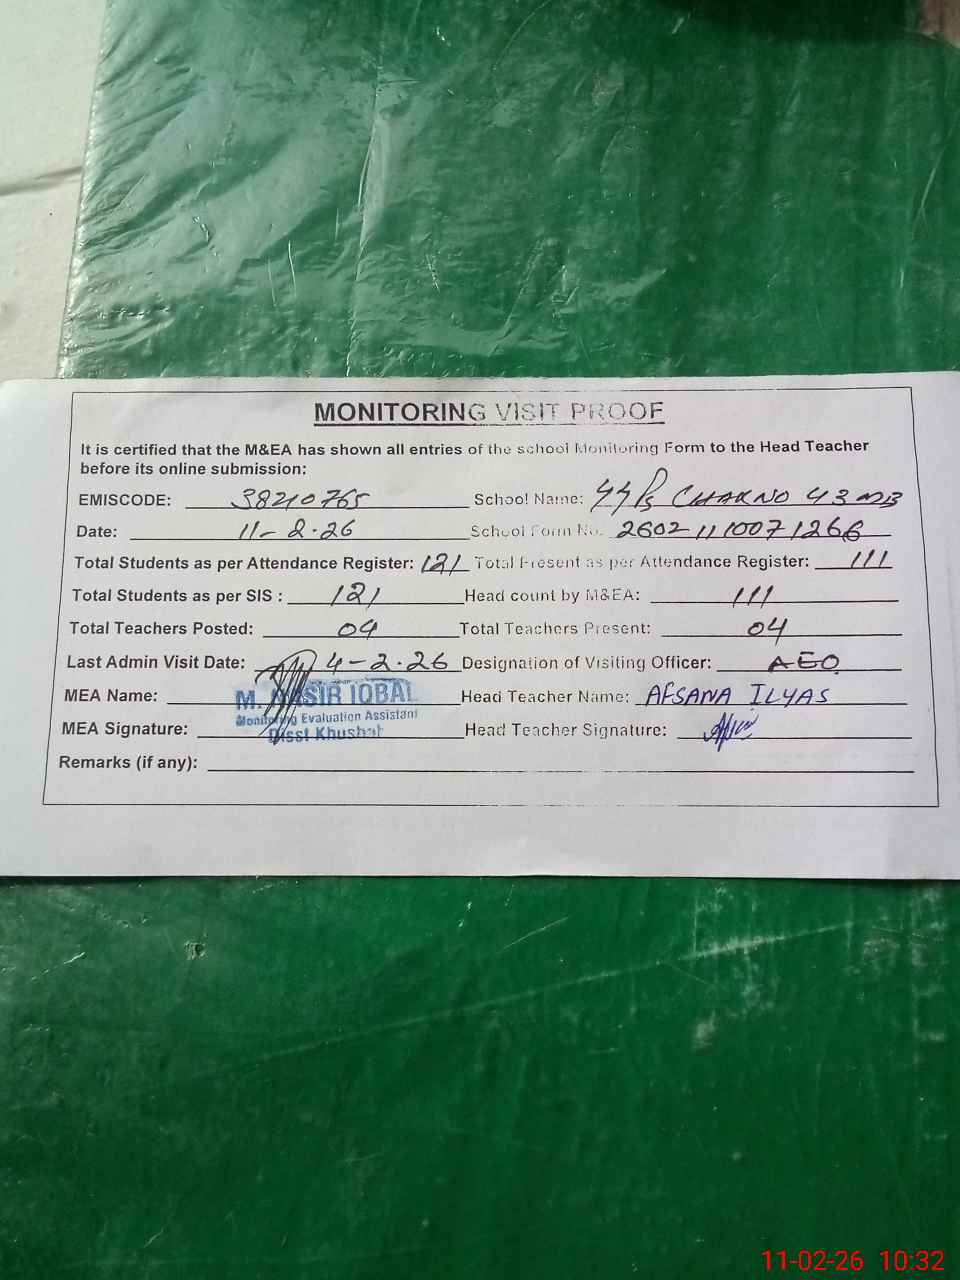 MONITORING VISIT PROOF
It is certified that the M&EA has shown all entries of the school Monitoring Form to the Head Teacher
before its online submission:
EMISCODE: 38210765 School Name: GGPS CHAKNO 43 MB
Date: 11-2-26 School Form No. 2602111007 1266
Total Students as per Attendance Register: 121 Total Present as per Attendance Register: 111
Total Students as per SIS : 121 Head count by M&EA: 111
Total Teachers Posted: 04 Total Teachers Present: 04
Last Admin Visit Date: 4-2-26 Designation of Visiting Officer: AEO
MEA Name: M. NASIR IQBAL Head Teacher Name: AFSANA ILYAS
Monitoring Evaluation Assistant
MEA Signature: Disst Khushab Head Teacher Signature:
Remarks (if any):
11-02-26 10:32